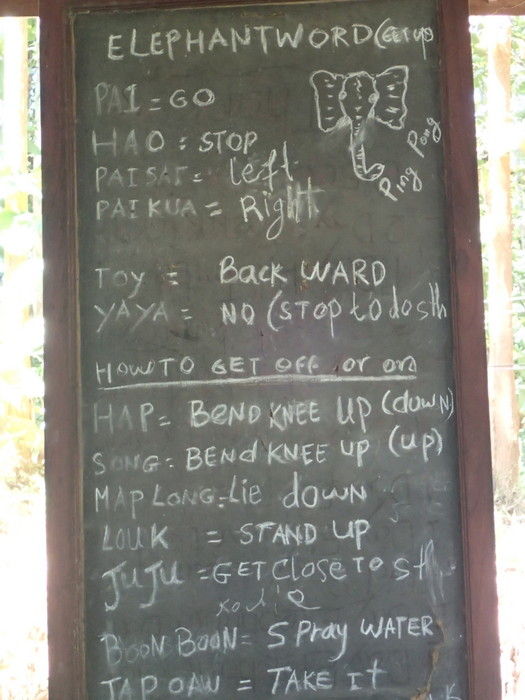 ELEPHANTWORD (Get up
PAI = GO
HAO : STOP
PAI SAI = Left
PAI KUA = Right
Ping Pong
TOY = Back WARD
YAYA = NO (STOP to do sth
HOW TO GET OFF or on
HAP = BEND KNEE UP (down)
SONG : BEND KNEE UP (up)
MAP LONG = Lie down
LOUK = STAND UP
JUJU = GET Close TO sth
BOON BOON = SPray WATER
TAP OAW = TAKE It